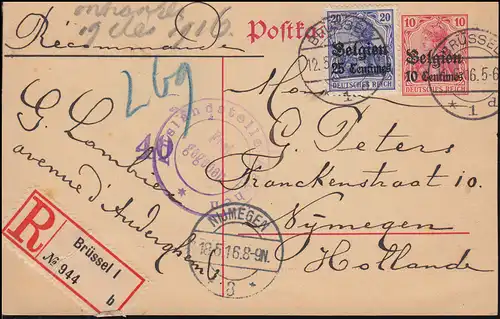 19 Mei 1916.
Recommandé
Postka
20 20
Belgien
25 Centimes
DEUTSCHES REICH
10 10
Belgien
10 Centimes
DEUTSCHES REICH
BRÜSSEL
12.5
1
BRÜSSEL
16.5-6
* 1 d
269
46
Auslandstelle
G. Lambier
avenue d'Auderghem
G. Peters
Franckenstraat 10.
Nymegen
Hollande
R
Brüssel 1
№ 944
b
NIJMEGEN
18.5.16.8-9N.
3